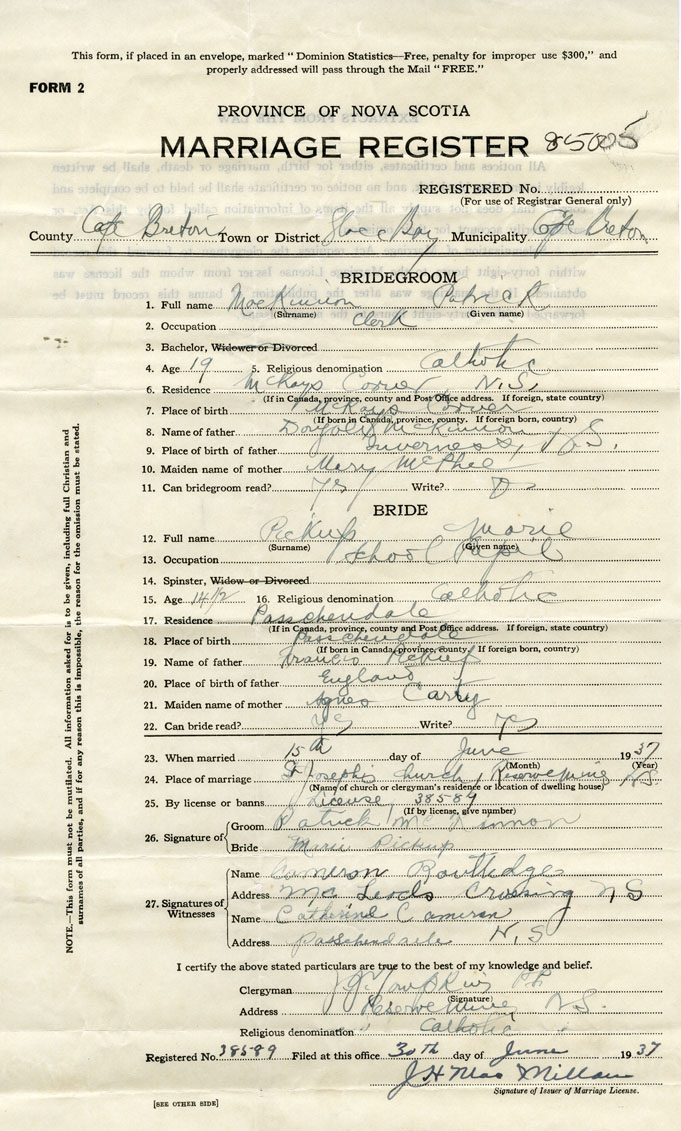 This form, if placed in an envelope, marked "Dominion Statistics—Free, penalty for improper use $300," and
properly addressed will pass through the Mail "FREE."
FORM 2
PROVINCE OF NOVA SCOTIA
MARRIAGE REGISTER 85005
REGISTERED No.
(For use of Registrar General only)
County Cape Breton Town or District Glace Bay Municipality Cape Breton
BRIDEGROOM
1. Full name MacKinnon Patrick
(Surname) (Given name)
2. Occupation Clerk
3. Bachelor, Widower or Divorced
4. Age 19 5. Religious denomination Catholic
6. Residence McKays Corner N.S.
(If in Canada, province, county and Post Office address. If foreign, state country)
7. Place of birth McKays Corner
(If born in Canada, province, county. If foreign born, country)
8. Name of father McKinnon
9. Place of birth of father Inverness, N.S.
10. Maiden name of mother Mary McPhee
11. Can bridegroom read? Yes Write?
BRIDE
12. Full name Pickup Marie
(Surname) (Given name)
13. Occupation School Pupil
14. Spinster, Widow or Divorced
15. Age 14 1/2 16. Religious denomination Catholic
17. Residence Passchendale
(If in Canada, province, county and Post Office address. If foreign, state country)
18. Place of birth Passchendale
(If born in Canada, province, county. If foreign born, country)
19. Name of father Francis Pickup
20. Place of birth of father England
21. Maiden name of mother Agnes Carry
22. Can bride read? Yes Write? Yes
23. When married 15th day of June 1937
(Month) (Year)
24. Place of marriage St Joseph's Church, Reserve Mine N.S.
(Name of church or clergyman's residence or location of dwelling house)
25. By license or banns License 38589
(If by license, give number)
26. Signature of
Groom Patrick McKinnon
Bride Marie Pickup
27. Signatures of Witnesses
Name Cameron Routledge
Address McLeods Crossing N S
Name Catherine Cameron
Address Passchendale N.S
I certify the above stated particulars are true to the best of my knowledge and belief.
Clergyman J.J. Tompkins P.P.
(Signature)
Address Reserve Mine N.S.
Religious denomination Catholic
Registered No. 38589 Filed at this office 30th day of June 1937
J H MacMillan
Signature of Issuer of Marriage License.
[SEE OTHER SIDE]
NOTE.—This form must not be mutilated. All information asked for is to be given, including full Christian and
surnames of all parties, and if for any reason this is impossible, the reason for the omission must be stated.